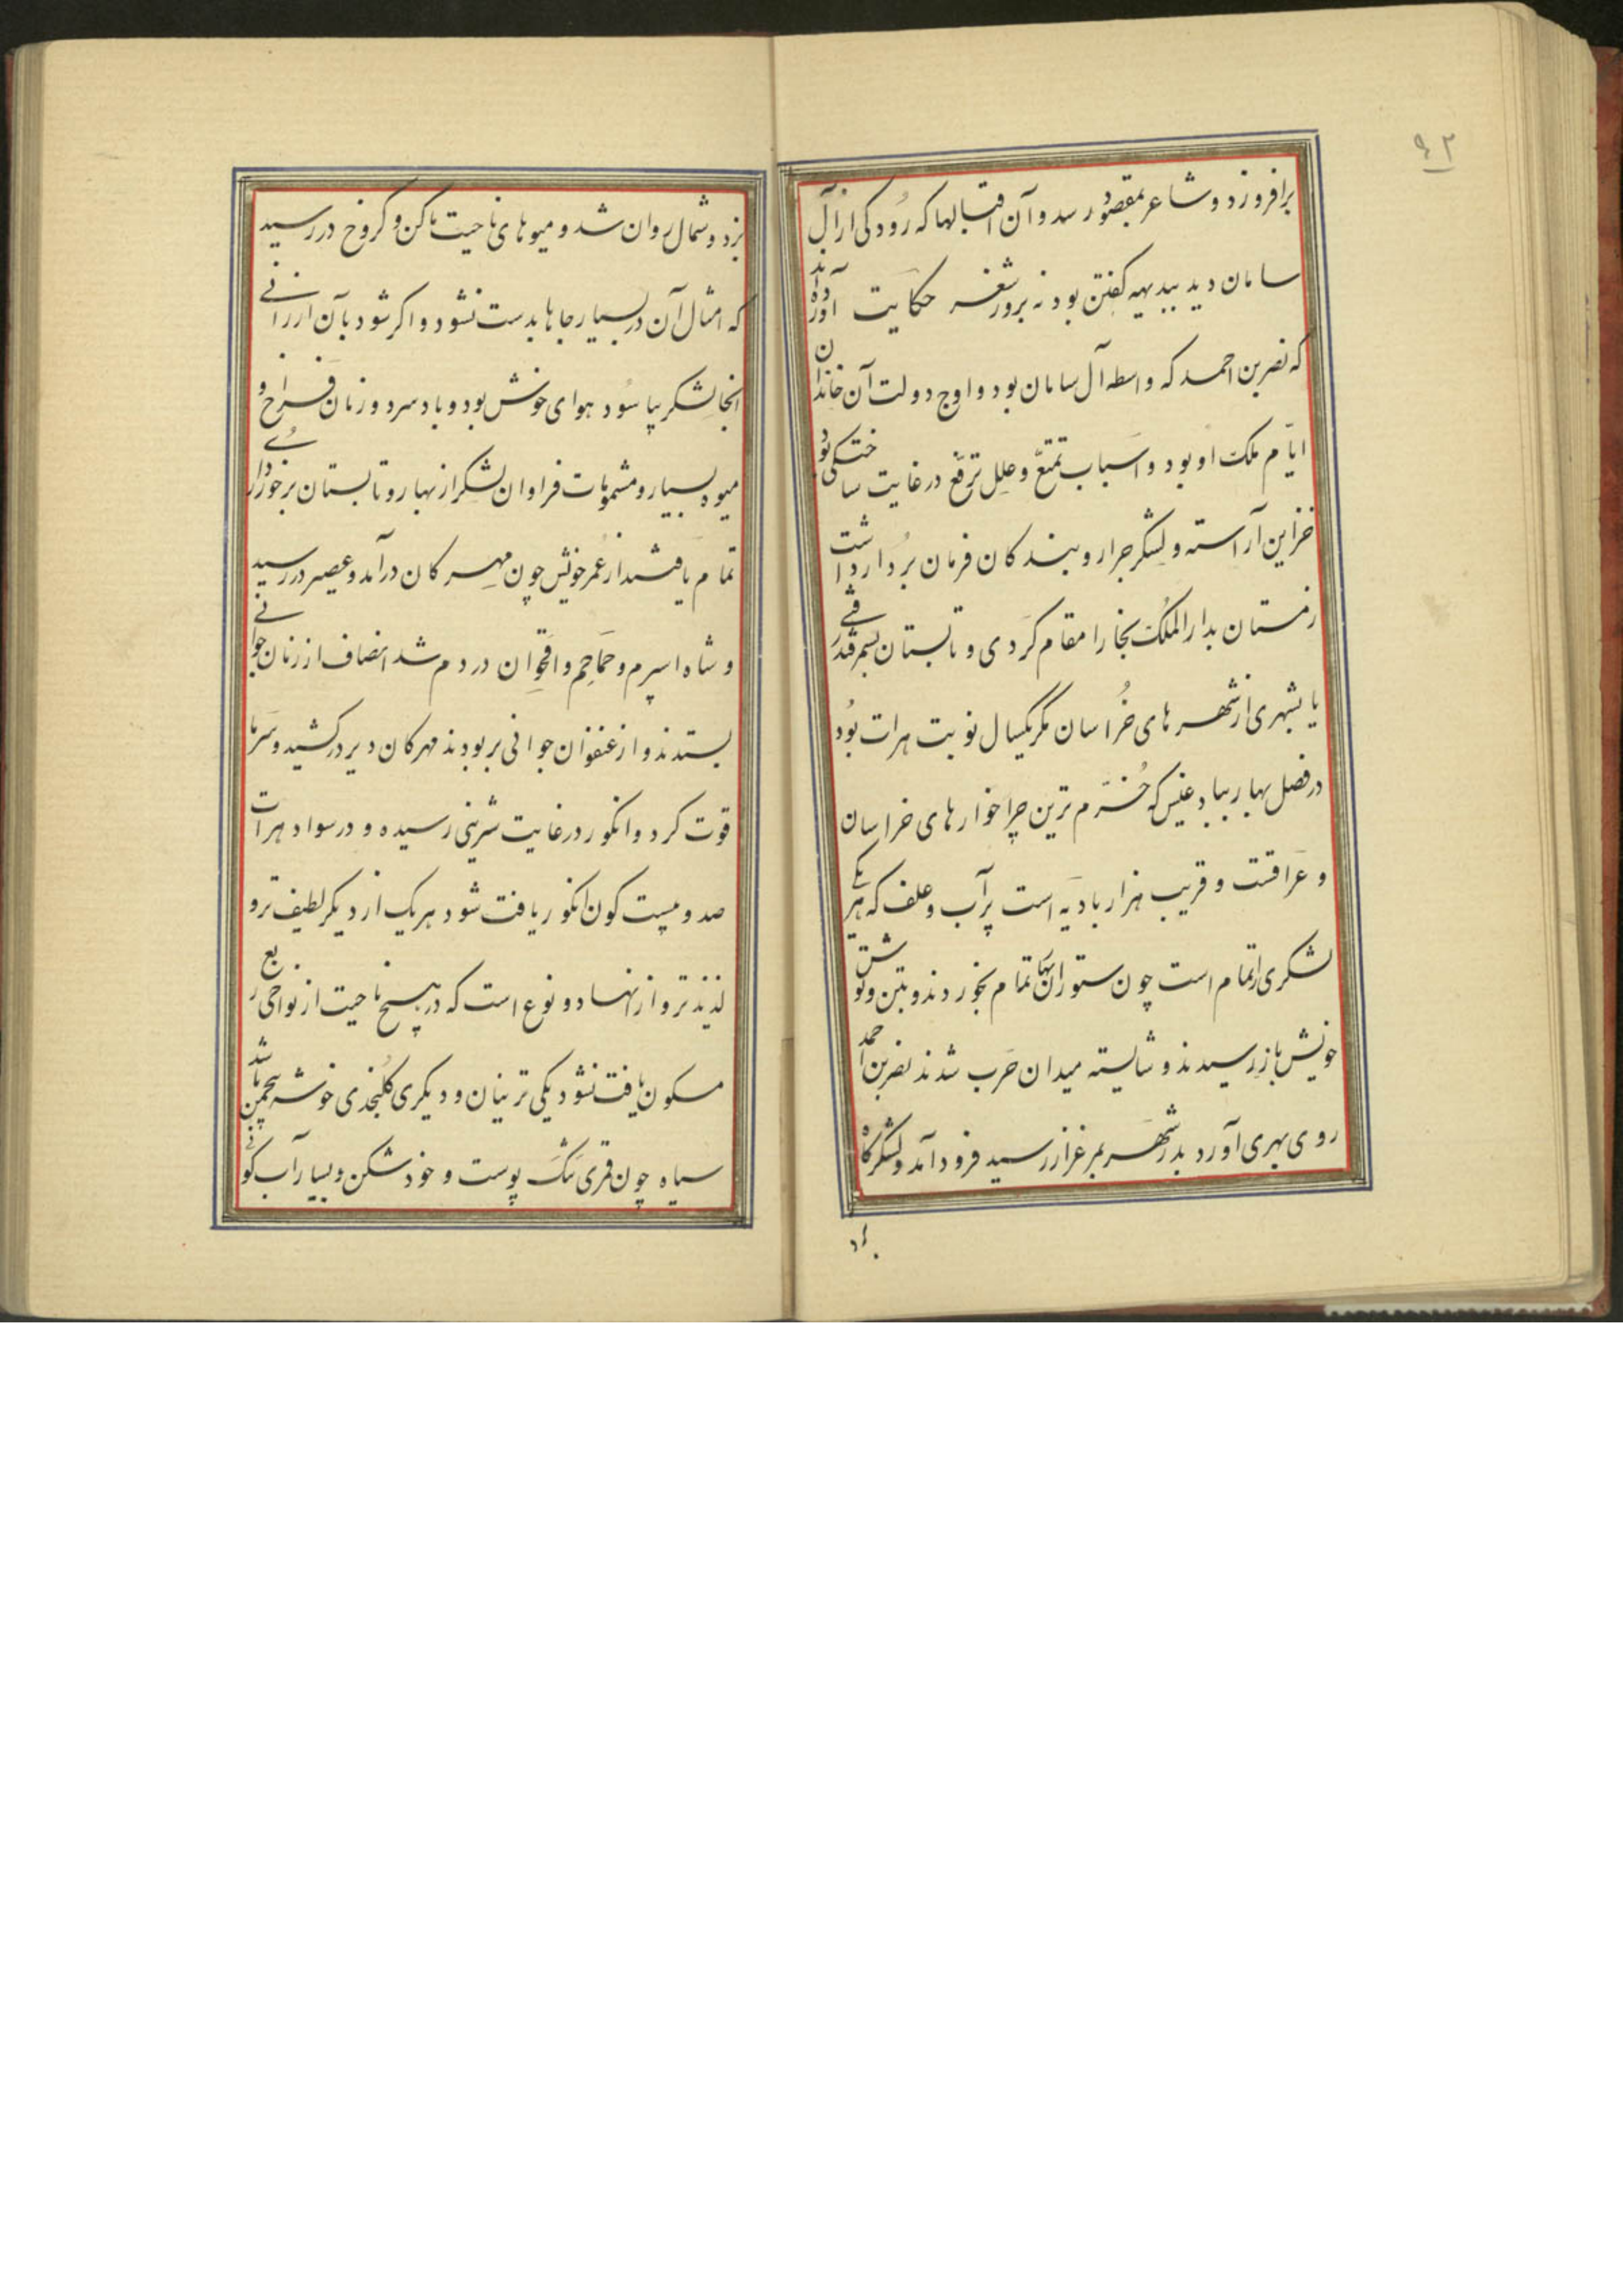 ۹۲
برافروزد و شاعر بمقصود رسد و آن اقبالها که رودکی از آل
سامان دید ببدیهه گفتن بود نه بروز شعر حکایت آورده‌اند
که نصر بن احمد که واسطه آل سامان بود و اوج دولت آن خاندان
ایّام ملک او بود و اسباب تمتّع و علل ترفّع در غایت ساختگی بود
خزاین آراسته و لشکر جرار و بندگان فرمان بُردار داشت
زمستان بدار الملک بخارا مقام کردی و تابستان بسمرقند رفتی
یا بشهری از شهرهای خُراسان مگر یکسال نوبت هرات بُود
در فصل بهار ببادغیس که خُرّم ترین چراخوارهای خراسان
و عراقست و قریب هزار بادیه است پر آب و علف که هر یکی
لشکری را تمام است چون ستوران بهار تمام بخوردند و بتن و توش
خویش باز رسیدند و شایسته میدان حَرب شدند نصر بن احمد
روی بهری آورد بدر شهر بمرغزار رسید فرود آمد و لشکرگاه
بزد
بزد و شمال روان شد و میوهای ناحیت ماکن و کروخ در رسید
که امثال آن در بسیار جاها بدست نشود و اگر شود بآن ارزانی
آنجا لشکر بیاسُود هوای خوش بود و باد سرد و زنان فراخ و
میوه بسیار و مشمومات فراوان لشکر از بهار و تابستان برخورداری
تمام یافتند از عُمر خویش چون مهرگان درآمد و عصیر در رسید
و شاه اسپرم و حَماحِم و اقحوان در دم شد انصاف از زنان جوانی
بستدند و از عنفوان جوانی بربودند مهرگان دیر درکشید و سَرما
قوت کرد و انگور در غایت شیرینی رسیده و در سواد هرات
صد و بیست کون انگور یافت شود هریک از دیگر لطیف تر و
لذیذتر و از انها دو نوع است که در هیچ ناحیت از نواحی ربع
مسکون یافت نشود یکی ترنیان و دیگری کلنجدی خوشه پنجمن باشد
سیاه چون قمری تنک پوست و خوردشکن و بسیار آب گوئی